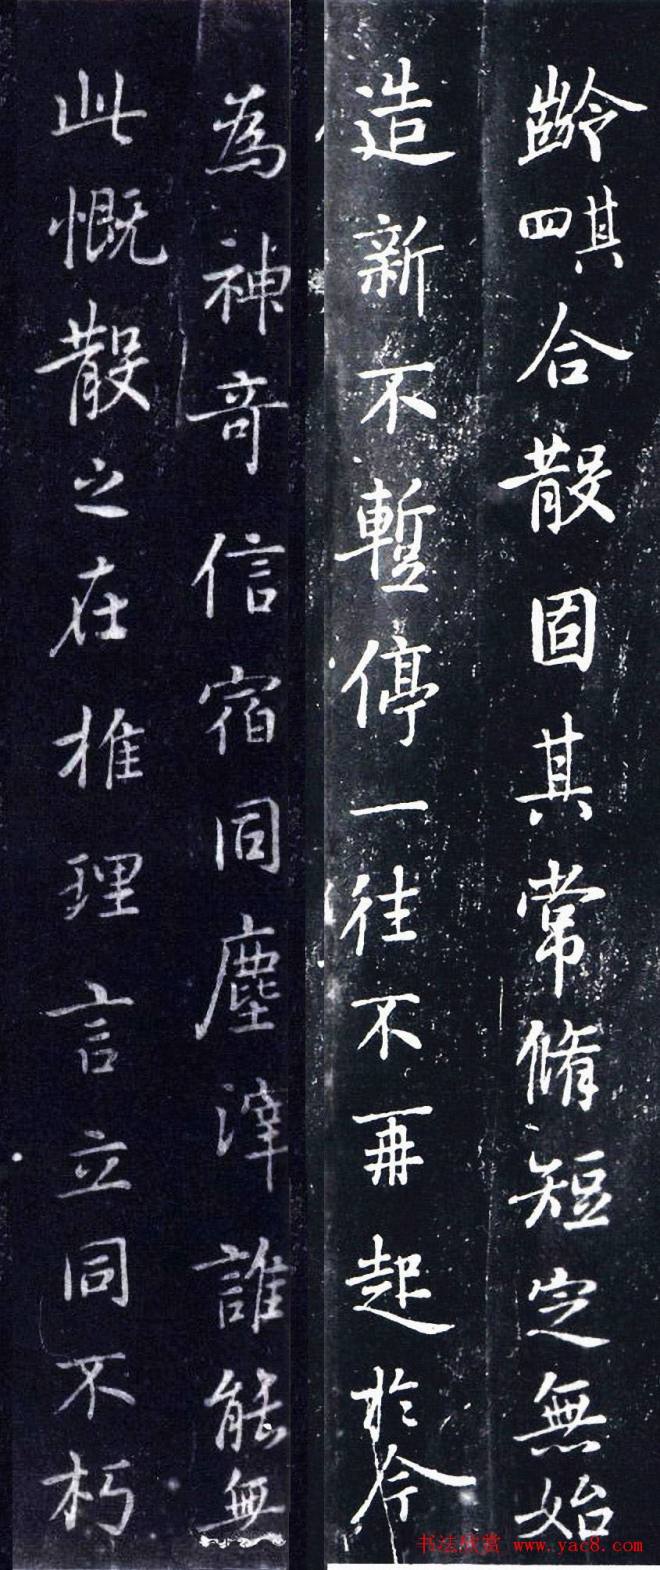 齡其四合散固其常脩短定無始
造新不暫停一往不再起於今
為神奇信宿同塵滓誰能無
此慨散之在推理言立同不朽
书法欣赏 www.yac8.com